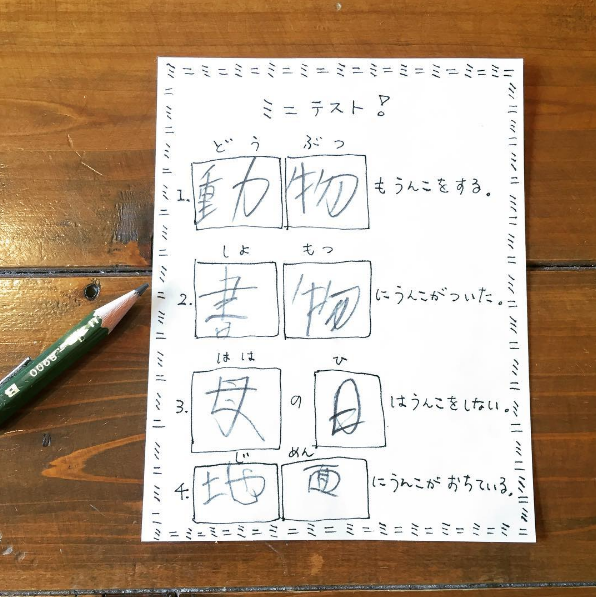 ミニテスト!
どう ぶつ
1. 動物もうんこをする。
しょ もつ
2. 書物にうんこがついた。
はは ひ
3. 母の日はうんこをしない。
じ めん
4. 地面にうんこがおちている。
B 9800